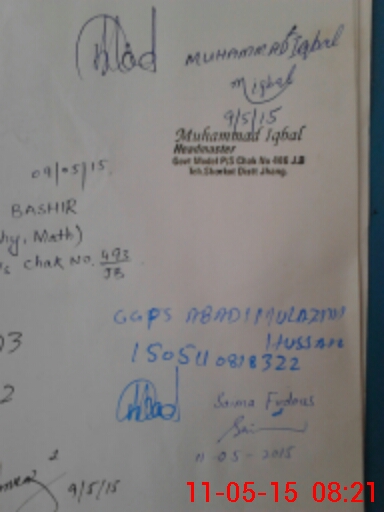 MUHAMMAD Iqbal
Miqbal
9/5/15
Muhammad Iqbal
Headmaster
Govt Model P/S Chak No 466 J.B
Teh. Shorkot Distt Jhang.
09/05/15.
BASHIR
hy, Math)
Chak No. 493/JB
GGPS ABADI MULAZIM
HUSSAIN
150511 0818322
Saima Firdous
11-05-2015
9/5/15
11-05-15 08:21